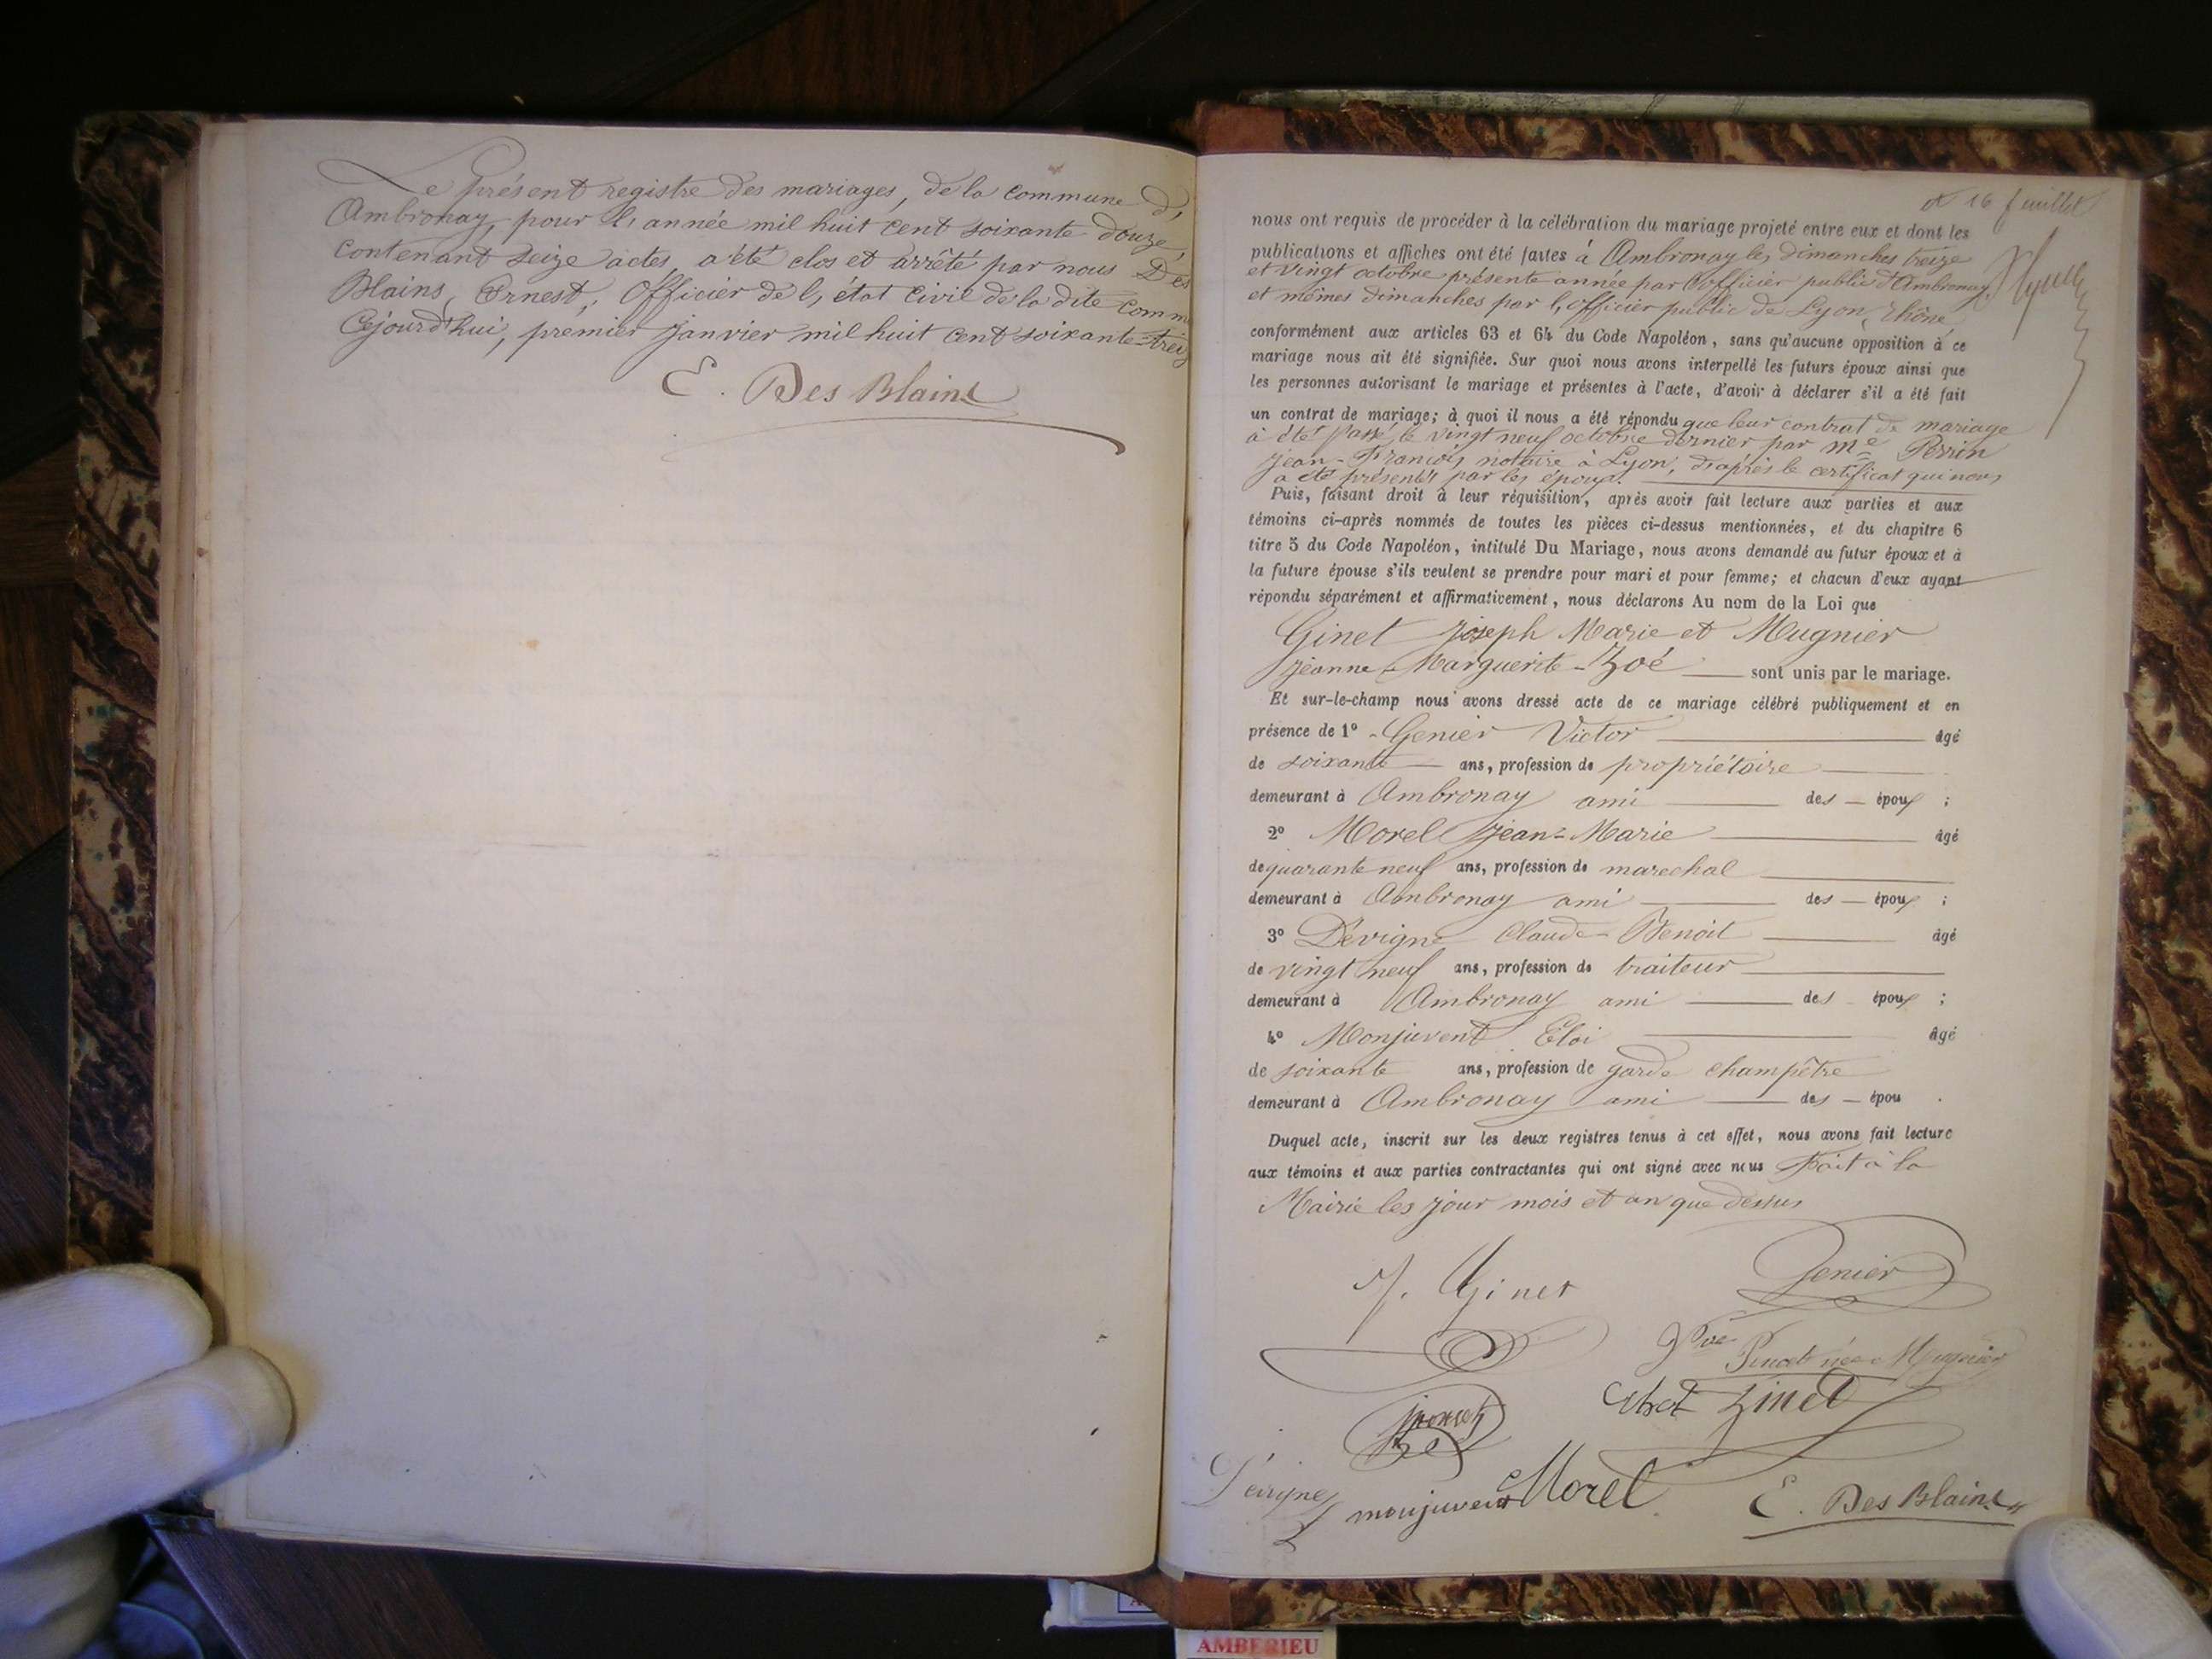 Le présent registre des mariages, de la commune d,
Ambronay, pour l, année mil huit cent soixante douze,
contenant seize actes, a été clos et arrêté par nous Des
Blains, Ernest, Officier de l, état civil de la dite comm
Cejourd'hui, premier Janvier mil huit cent soixante-treiz
E. Des Blains
et 16 feuillet
nous ont requis de procéder à la célébration du mariage projeté entre eux et dont les
publications et affiches ont été faites à Ambronay les dimanches treize
et vingt octobre présente année par l'officier public d'Ambronay
et mêmes dimanches par l, officier public de Lyon, Rhône
conformément aux articles 63 et 64 du Code Napoléon, sans qu'aucune opposition à ce
mariage nous ait été signifiée. Sur quoi nous avons interpellé les futurs époux ainsi que
les personnes autorisant le mariage et présentes à l'acte, d'avoir à déclarer s'il a été fait
un contrat de mariage; à quoi il nous a été répondu que leur contrat de mariage
à été passé, le vingt neuf octobre dernier par Me Perrin
Jean-François notaire à Lyon, d'après le certificat qui nous
a été présenté par les époux.
Puis, faisant droit à leur réquisition, après avoir fait lecture aux parties et aux
témoins ci-après nommés de toutes les pièces ci-dessus mentionnées, et du chapitre 6
titre 5 du Code Napoléon, intitulé Du Mariage, nous avons demandé au futur époux et à
la future épouse s'ils veulent se prendre pour mari et pour femme; et chacun d'eux ayant
répondu séparément et affirmativement, nous déclarons Au nom de la Loi que
Ginet Joseph Marie et Mugnier
Jeanne-Marguerite-Zoé sont unis par le mariage.
Et sur-le-champ nous avons dressé acte de ce mariage célébré publiquement et en
présence de 1° Genier Victor âgé
de soixante ans, profession de propriétaire
demeurant à Ambronay ami des époux ;
2° Morel Jean-Marie âgé
de quarante neuf ans, profession de marechal
demeurant à Ambronay ami des époux ;
3° Dévigne Claude-Benoit âgé
de vingt neuf ans, profession de traiteur
demeurant à Ambronay ami des époux ;
4° Monjuvent Eloi âgé
de soixante ans, profession de garde champêtre
demeurant à Ambronay ami des épou .
Duquel acte, inscrit sur les deux registres tenus à cet effet, nous avons fait lecture
aux témoins et aux parties contractantes qui ont signé avec nous Fait à la
Mairie les jour mois et an que dessus
J. Ginet
Genier
Vve née Mugnier
Ginet
Dévigne
monjuvent Morel
E. Des Blains
AMBERIEU